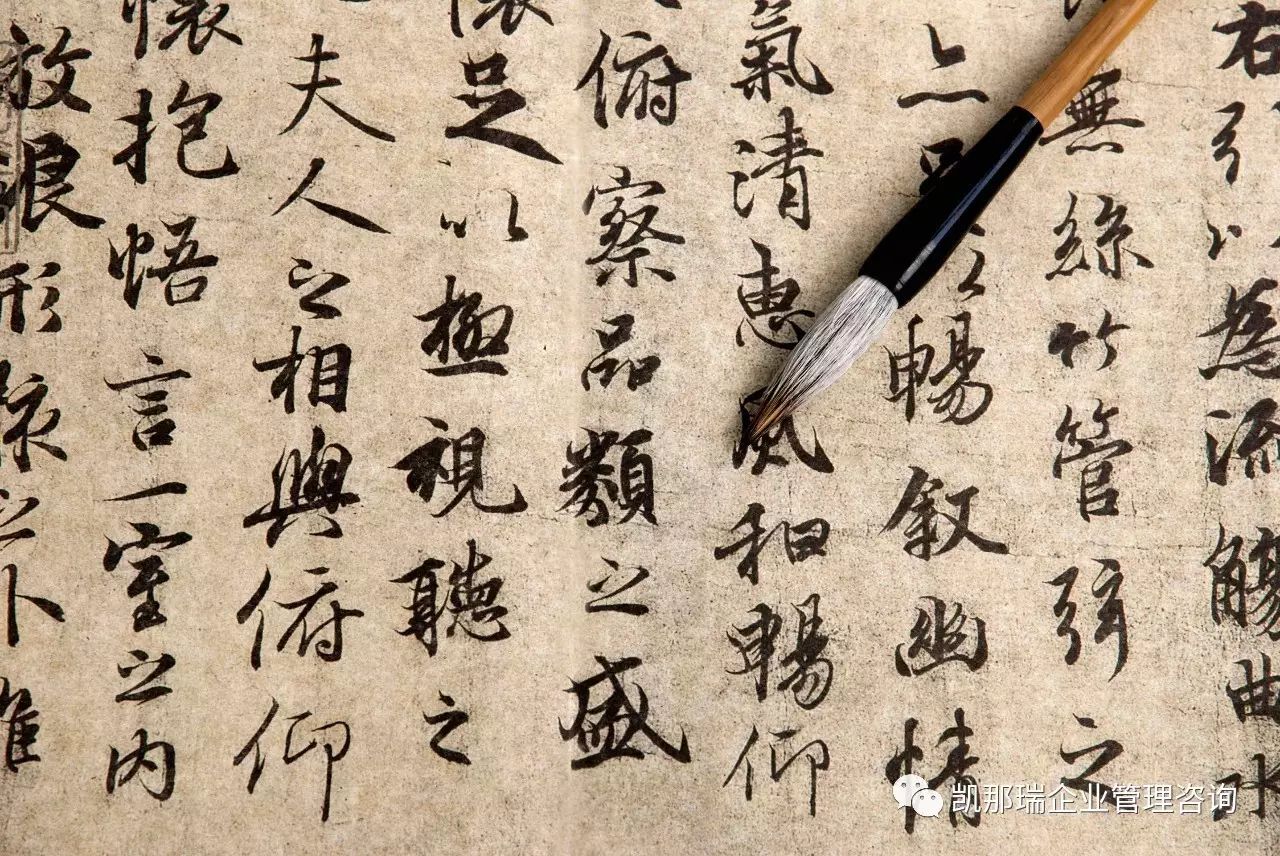 右引以為流觴曲水
無絲竹管弦之
亦足以暢叙幽情
氣清惠風和暢仰
俯察品類之盛
懷足以極視聽之
夫人之相與俯仰
懷抱悟言一室之內
放浪形骸之外雖
凯那瑞企业管理咨询